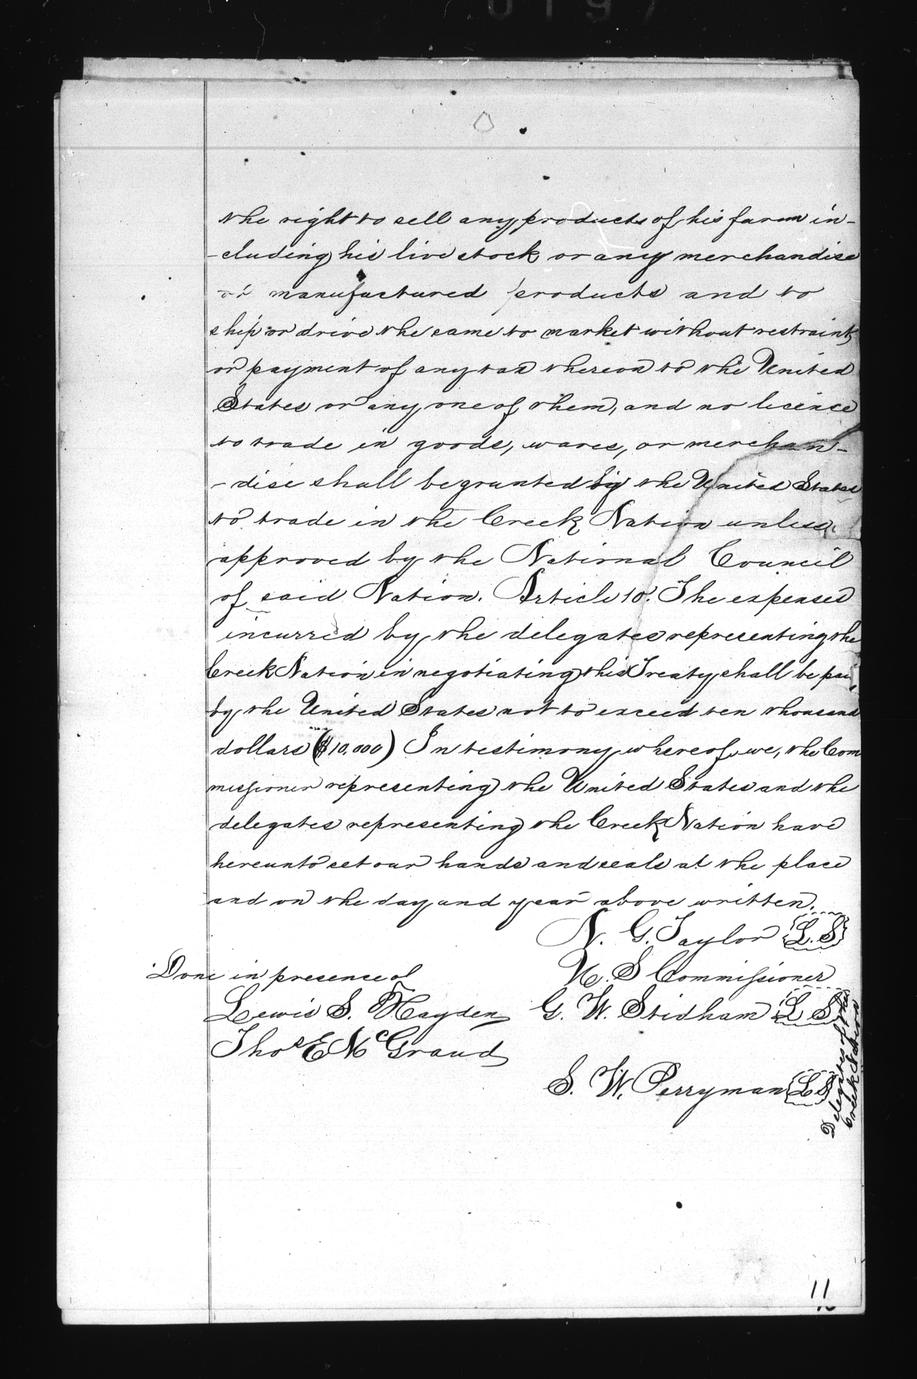 0197
the right to sell any products of his farm in-
-cluding his live stock or any merchandise
or manufactured products and to
ship or drive the same to market without restraint,
or payment of any tax thereon to the United
States or any one of them, and no licence
to trade in goods, wares, or merchan-
-dise shall be granted by the United States
to trade in the Creek Nation unless
approved by the National Council
of said Nation. Article 10. The expenses
incurred by the delegates representing the
Creek Nation in negotiating this Treaty shall be paid
by the United States not to exceed ten thousand
dollars ($10,000) In testimony whereof, we, the Com
missioner representing the United States and the
delegates representing the Creek Nation have
hereunto set our hands and seals at the place
and on the day and year above written.
N. G. Taylor L. S
U. S Commissioner
Done in presence of
Lewis S. Hayden
G. W. Stidham L S
Thos E McGraud
S. W. Perryman L S
Delegates of the
Creek Nation
11